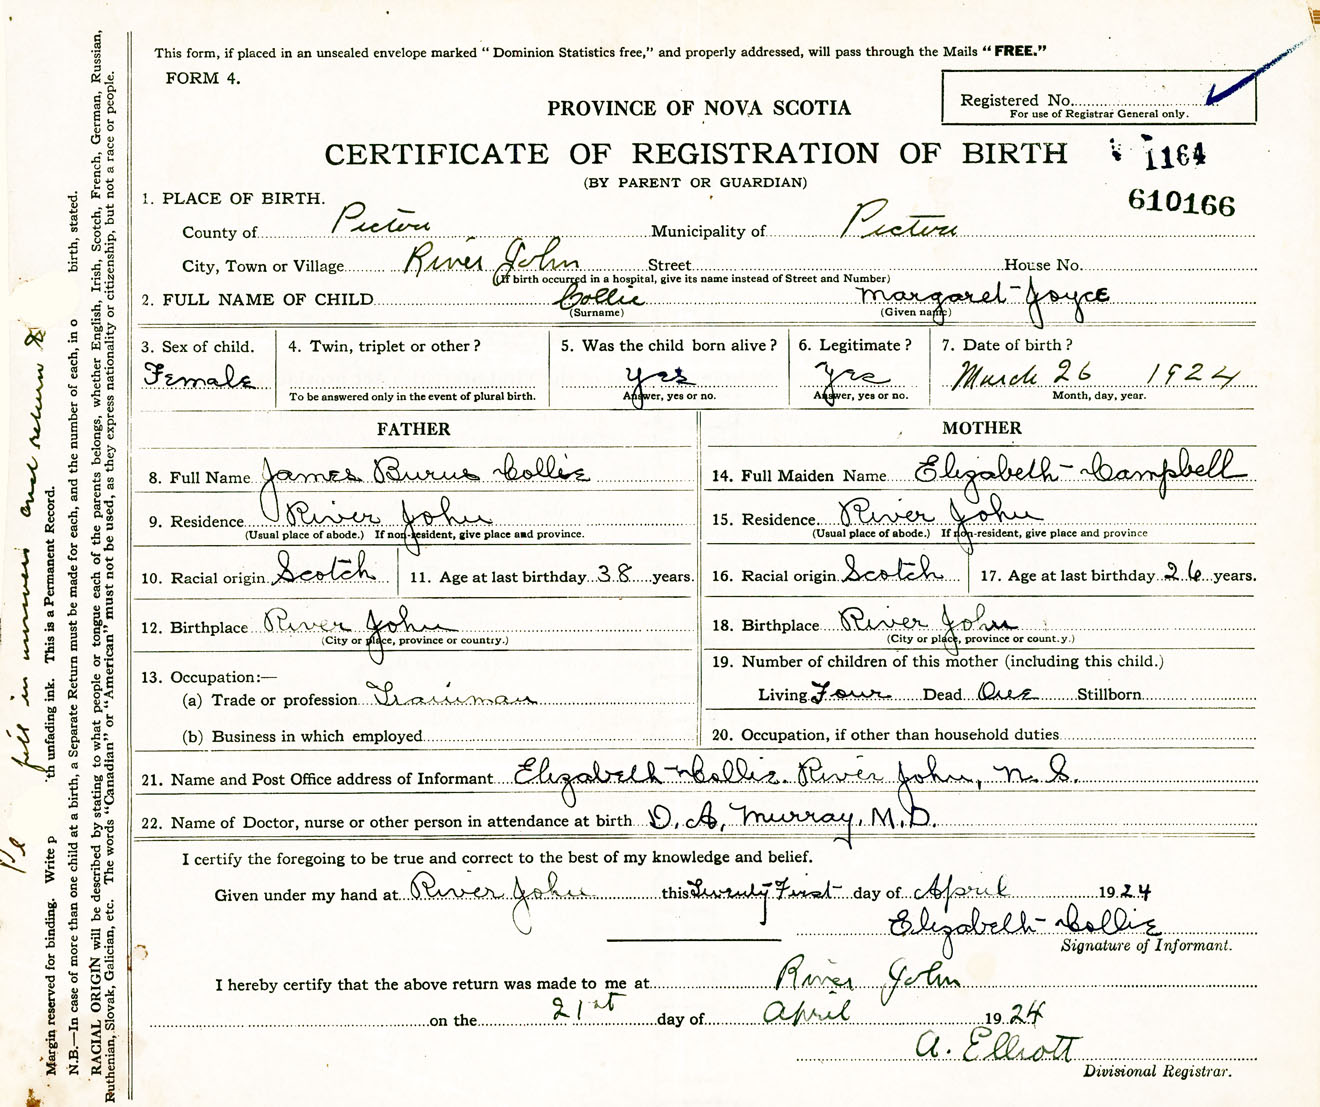 This form, if placed in an unsealed envelope marked “Dominion Statistics free,” and properly addressed, will pass through the Mails “FREE.”
FORM 4.
Registered No.
For use of Registrar General only.
PROVINCE OF NOVA SCOTIA
CERTIFICATE OF REGISTRATION OF BIRTH
1164
(BY PARENT OR GUARDIAN)
610166
1. PLACE OF BIRTH.
County of Pictou Municipality of Pictou
City, Town or Village River John Street House No.
(If birth occurred in a hospital, give its name instead of Street and Number)
2. FULL NAME OF CHILD Collie Margaret Joyce
(Surname) (Given name)
3. Sex of child. 4. Twin, triplet or other? 5. Was the child born alive? 6. Legitimate? 7. Date of birth?
Female yes yes March 26 1924
To be answered only in the event of plural birth. Answer, yes or no. Answer, yes or no. Month, day, year.
FATHER
8. Full Name James Burns Collie
9. Residence River John
(Usual place of abode.) If non-resident, give place and province.
10. Racial origin Scotch 11. Age at last birthday 38 years.
12. Birthplace River John
(City or place, province or country.)
13. Occupation:—
(a) Trade or profession Trainman
(b) Business in which employed
MOTHER
14. Full Maiden Name Elizabeth Campbell
15. Residence River John
(Usual place of abode.) If non-resident, give place and province
16. Racial origin Scotch 17. Age at last birthday 26 years.
18. Birthplace River John
(City or place, province or count.y.)
19. Number of children of this mother (including this child.)
Living Four Dead One Stillborn
20. Occupation, if other than household duties
21. Name and Post Office address of Informant Elizabeth Collie. River John, N. S.
22. Name of Doctor, nurse or other person in attendance at birth D. A. Murray, M.D.
I certify the foregoing to be true and correct to the best of my knowledge and belief.
Given under my hand at River John this Twenty First day of April 1924
Elizabeth Collie
Signature of Informant.
I hereby certify that the above return was made to me at River John
on the 21st day of April 1924
A. Elliott
Divisional Registrar.
fill in answers and return
Margin reserved for binding. Write p th unfading ink. This is a Permanent Record.
N.B.—In case of more than one child at a birth, a Separate Return must be made for each, and the number of each, in o birth, stated.
RACIAL ORIGIN will be described by stating to what people or tongue each of the parents belongs, whether English, Irish, Scotch, French, German, Russian,
Ruthenian, Slovak, Galician, etc. The words “Canadian” or “American” must not be used, as they express nationality or citizenship, but not a race or people.